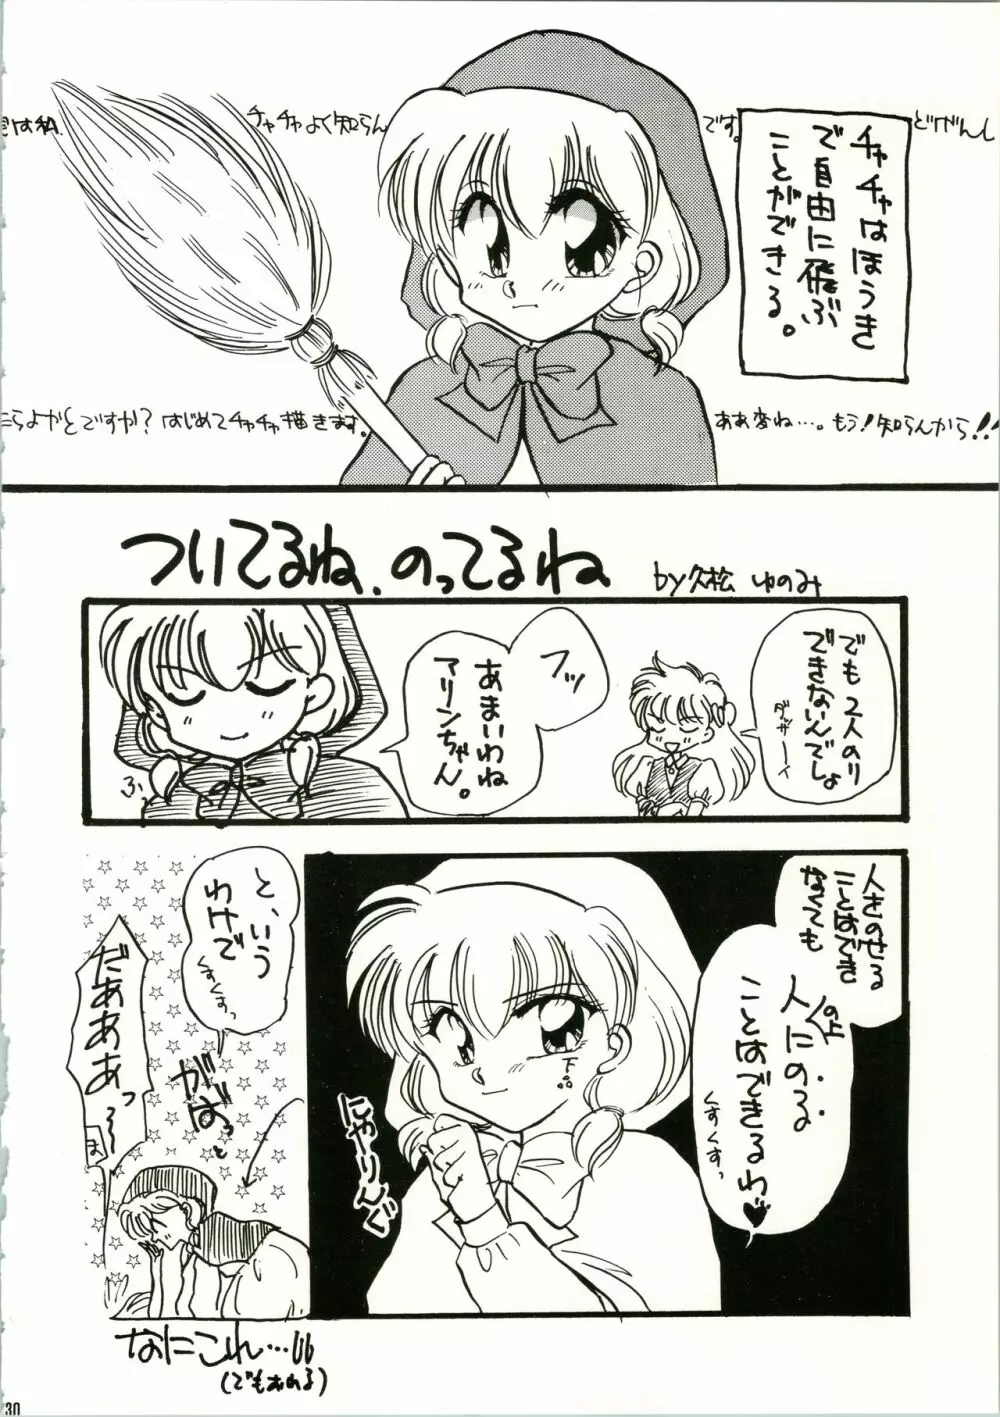 チャチャよく知らん
です。
チャチャはほうき
で自由に飛ぶ
ことができる。
よかとですか?はじめてチャチャ描きます。
ああ変ね…。もう!知らんから!!
ついてるね、のってるね
by久松 ゆのみ
でも2人のり
できないんでしょ
ダサーイ
フッ
あまいわね
マリンちゃん。
ふ、
人をのせる
ことはでき
なくても
人の上にのる
ことはできるわ♥
くすくすっ
下
にやりんぐ
と、いう
わけで
くすくすっ
がばっ
と
だあああっ
ま
なにこれ…
30